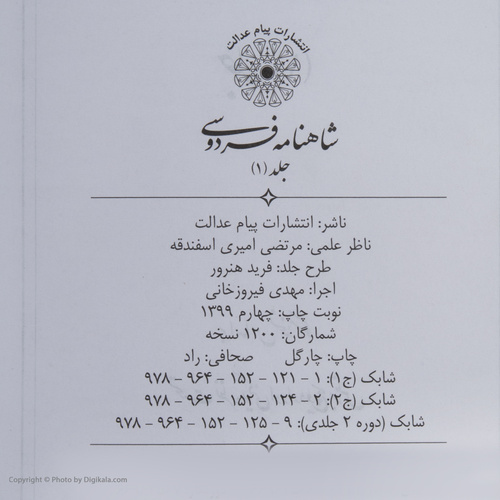 انتشارات پیام عدالت
شاهنامه فردوسی
جلد (۱)
ناشر: انتشارات پیام عدالت
ناظر علمی: مرتضی امیری اسفندقه
طرح جلد: فرید هنرور
اجرا: مهدی فیروزخانی
نوبت چاپ: چهارم ۱۳۹۹
شمارگان: ۱۲۰۰ نسخه
چاپ: چارگل صحافی: راد
شابک (ج۱): ۱ - ۱۲۱ - ۱۵۲ - ۹۶۴ - ۹۷۸
شابک (ج۲): ۲ - ۱۲۴ - ۱۵۲ - ۹۶۴ - ۹۷۸
شابک (دوره ۲ جلدی): ۹ - ۱۲۵ - ۱۵۲ - ۹۶۴ - ۹۷۸
Copyright © Photo by Digikala.com